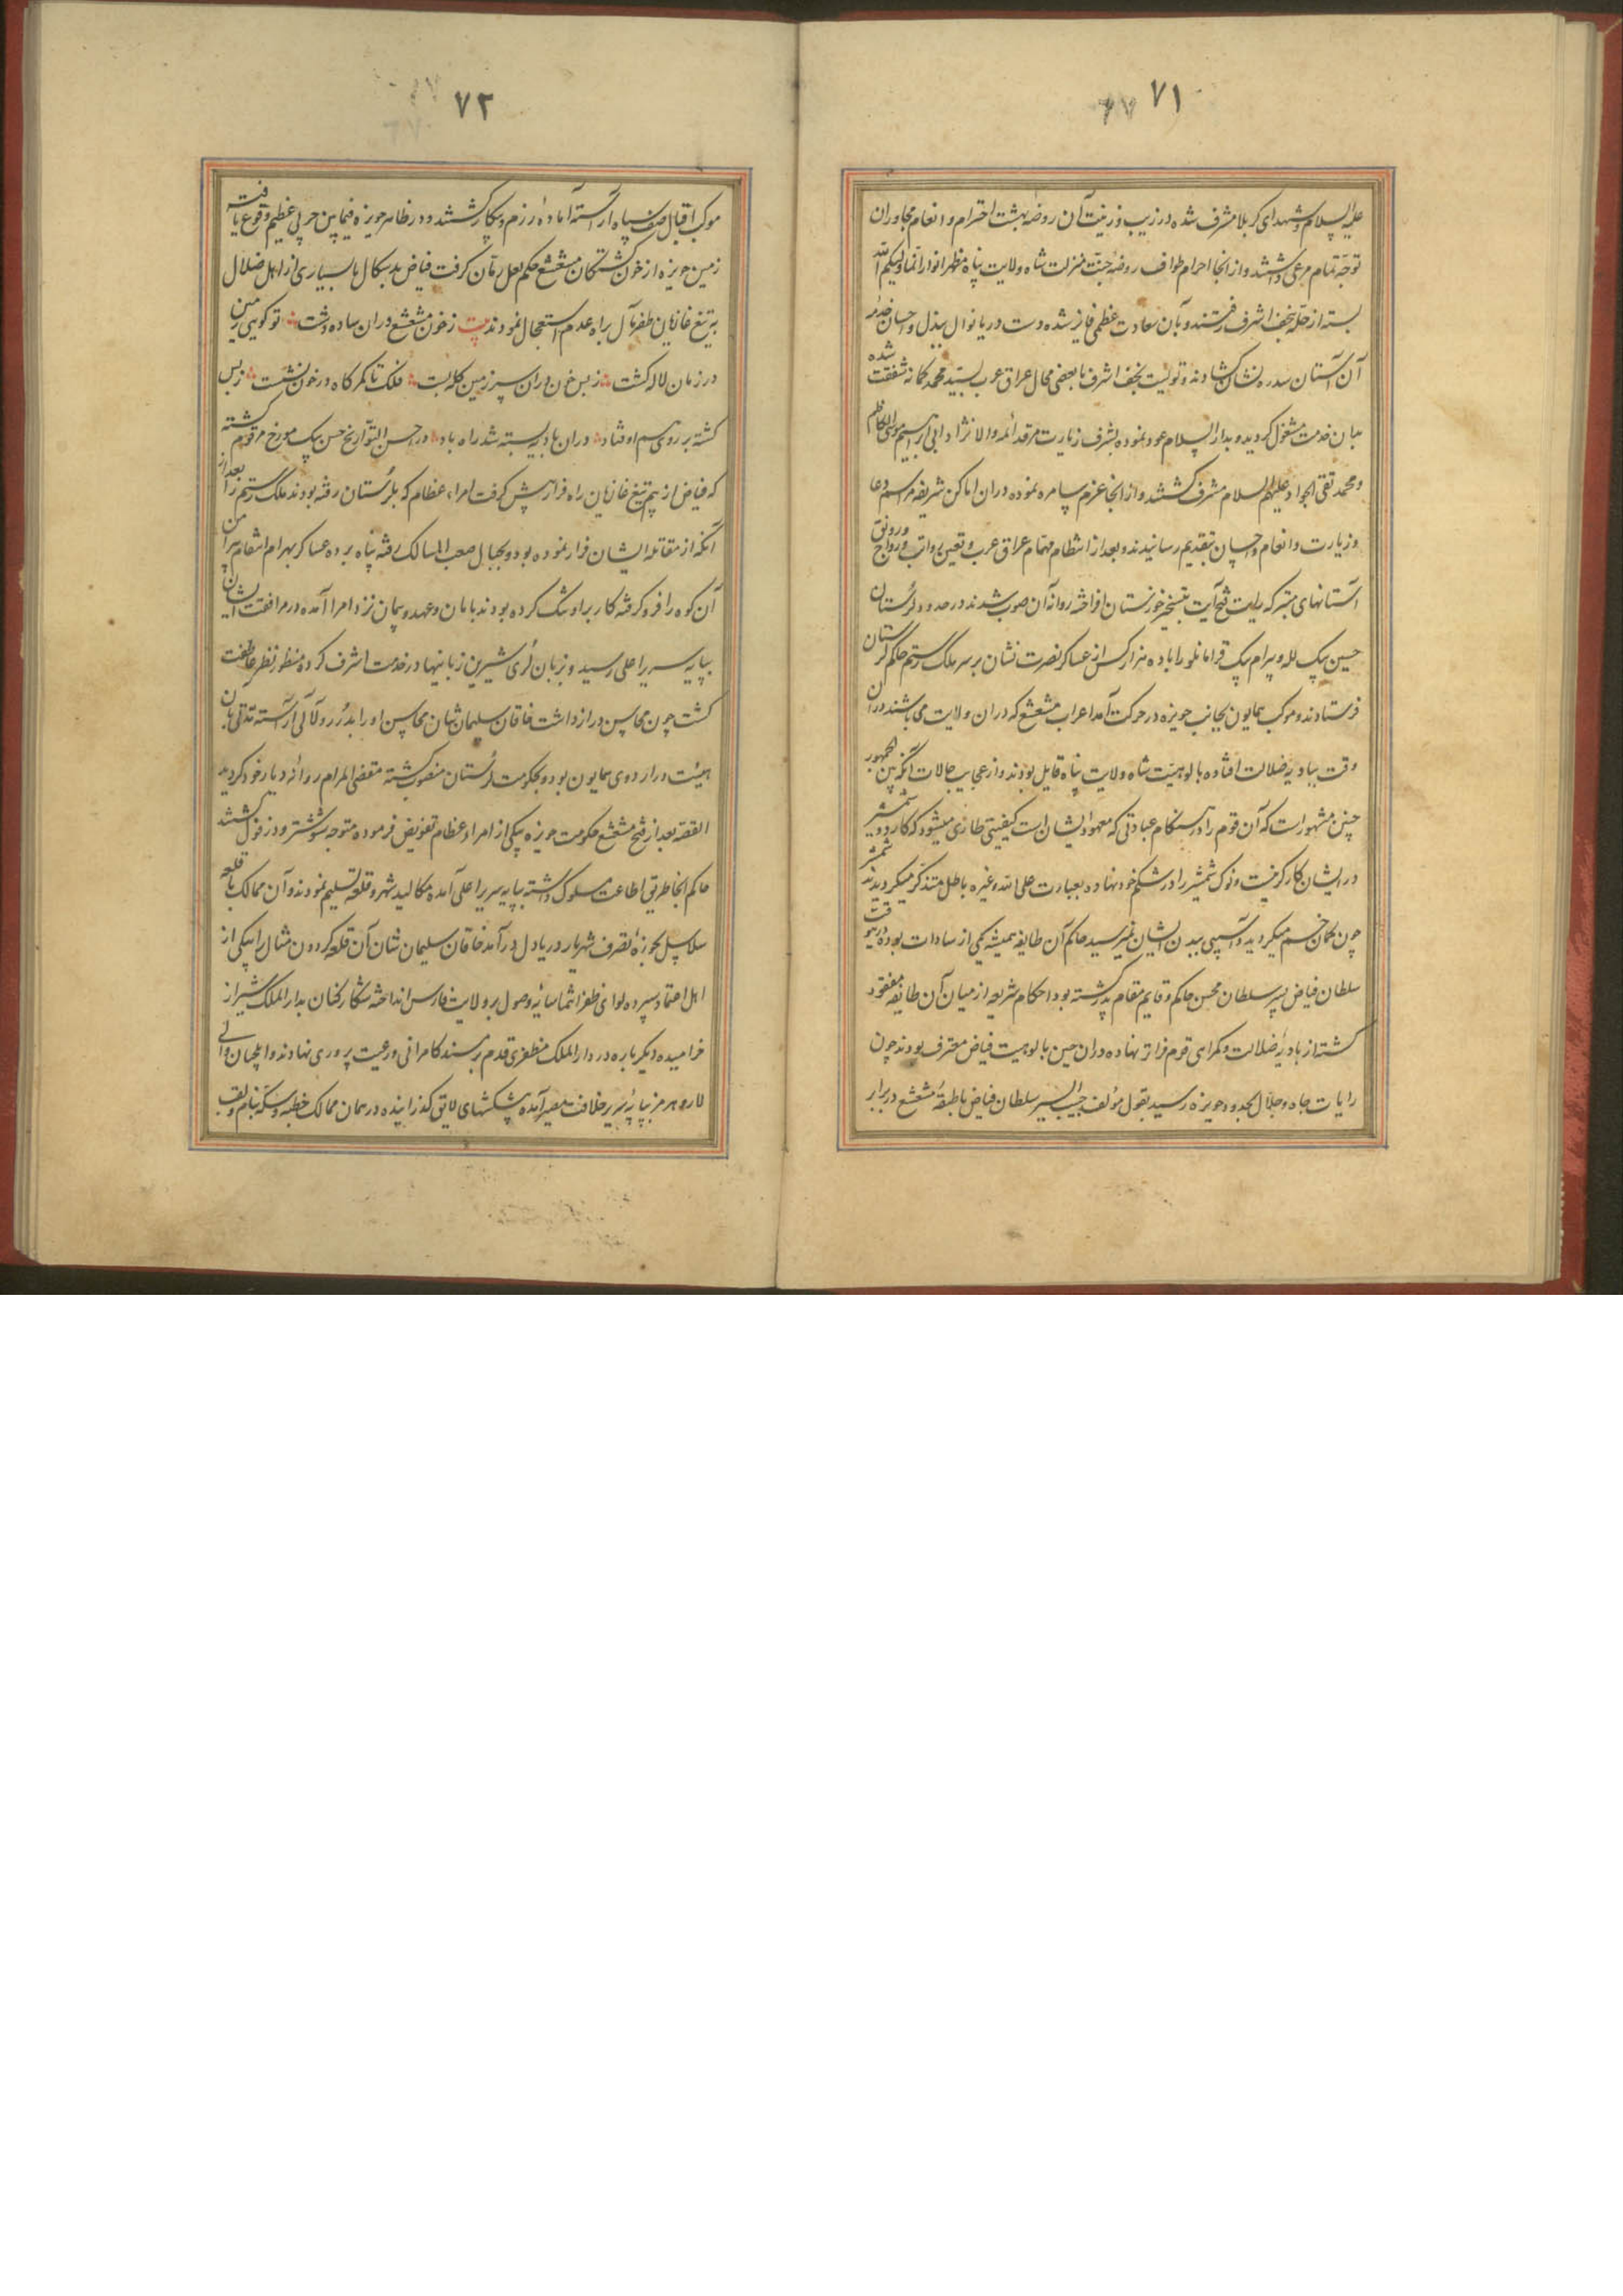 ۷۱
علیه السلام و شهدای کربلا مشرف شده در زیب و زینت آن روضه بهشت احترام و انعام مجاوران
توجه تمام مرعی داشتند و از آنجا احرام طواف روضه جنت منزلت شاه ولایت پناه مظهر انوار انما ولیکم الله
بسته از حله بنجف اشرف رفتند و بآن سعادت عظمی فایز شده دست دریا نوال ببذل و احسان خدمه
آن آستان سدره نشان کشادند و تولیت نجف اشرف با بعضی محال عراق عرب بسید محمد کمانه شفقت شده
بآن خدمت مشغول گردید و بدار السلام عود نموده بشرف زیارت مرقد ائمه والا نژاد ابی ابراهیم موسی الکاظم
و محمد تقی الجواد علیهم السلام مشرف گشتند و از آنجا عزم سامره نموده در آن اماکن شریفه مراسم دعا
و زیارت و انعام و احسان بتقدیم رسانیدند و بعد از انتظام مهام عراق عرب و تعین رواتب و رواج و رونق
آستانهای متبرکه رایت فتح آیت بتسخیر خوزستان افراخته روانه آن صوب شدند در حدود لرستان
حسین بیک لله و بیرام بیک قرامانلو را با ده هزار کس از عساکر نصرت نشان بر سر ملک رستم حاکم لرستان
فرستادند و موکب همایون بجانب حویزه در حرکت آمد اعراب مشعشع که در آن ولایت می باشند در آن
وقت ببادیه ضلالت افتاده بالوهیت شاه ولایت پناه قایل بودند و از عجایب حالات آنکه بین الجمهور
چنین مشهور است که آن قوم را در هنگام عبادتی که معهود ایشان است کیفیتی طاری میشود که کارد و شمشیر
در ایشان کارگر نیست و نوک شمشیر را در شکم خود نهاده بعبارت علی الله و غیره باطل متذکر میگردیدند شمشیر
چون کمان خم میگردید و آسیبی ببدن ایشان نمیرسید حاکم آن طایفه همیشه یکی از سادات بوده در این وقت
سلطان فیاض پسر سلطان محسن حاکم و قایم مقام پدر گشته بود احکام شریعه از میان آن طایفه مفقود
گشته از بادیه ضلالت و گمراهی قدم فراتر نهاده در آن حین بالوهیت فیاض معترف بودند چون
رایات جاه و جلال بحدود حویزه رسید بقول مؤلف حبیب السیر سلطان فیاض با طبقه مشعشع در برابر
۷۲
موکب اقبال صف سپاه آراسته آماده رزم و پیکار گشتند و در ظاهر حویزه فیمابین حربی عظیم وقوع یافته
زمین حویزه از خون کشتگان مشعشع حکم لعل رمان گرفت فیاض بدسگال با بسیاری از اهل ضلال
به تیغ غازیان ظفر مآل براه عدم استعجال نمودند بیت ز خون مشعشع در آن ساده دشت تو گویی زمین
در زمان لاله گشت ز بس خون در آن سرزمین حله بست فلک تا کمرگاه در خون نشست ز بس
کشته بر روی هم اوفتاد در آن بادیه بسته شد راه باد در احسن التواریخ حسن بیک مورخ مرقوم گشته
که فیاض از بیم تیغ غازیان راه فرار پیش گرفت امراء عظام که بلرستان رفته بودند ملک رستم را بعد از
آنکه از مقاتله ایشان فرار نموده بود و بجبال صعب المسالک رفته پناه برده عساکر بهرام انتقام پیرامن
آن کوه را فرو گرفته کار بر او تنگ کرده بودند بامان و عهد و پیمان نزد امرا آمده در مرافقت ایشان
بپایه سریر اعلی رسید و بزبان لری شیرین زبانیها در خدمت اشرف کرده منظور نظر عاطفت
گشت چون محاسن دراز داشت خاقان سلیمان شان محاسن او را بدرر و لآلی آراسته مدتی بآن
هیئت در اردوی همایون بود و بحکومت لرستان منصوب گشته مقضی المرام روانه دیار خود گردید
القصه بعد از فتح مشعشع حکومت حویزه بیکی از امراء عظام تفویض فرموده متوجه شوشتر و دزفول گشتند
حاکم آنجا طریق اطاعت مسلوک داشته بپایه سریر اعلی آمده مکالید شهر و قلعه تسلیم نمودند و آن ممالک با قلعه
سلاسل بحوزه تصرف شهریار دریا دل درآمد خاقان سلیمان نشان آن قلعه گردون مثال را بیکی از
اهل اعتماد سپرده لوای ظفر انتما سایه وصول بر ولایت فارس انداخته شکار کنان بدار الملک شیراز
خرامیده دیگر باره در دار الملک مظفری قدم بر مسند کامرانی و رعیت پروری نهادند و ایلچیان والی
لار و هرمز بپایه سریر خلافت مصیر آمده پیشکشهای لایق گذرانیده در همان ممالک خطبه و سکه بنام و لقب